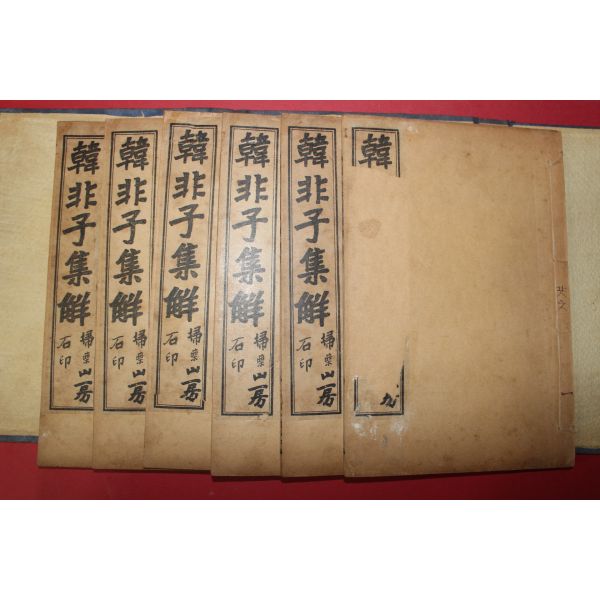 韓非子集解
掃葉山房
石印
韓非子集解
掃葉山房
石印
韓非子集解
掃葉山房
石印
韓非子集解
掃葉山房
石印
韓非子集解
掃葉山房
石印
韓